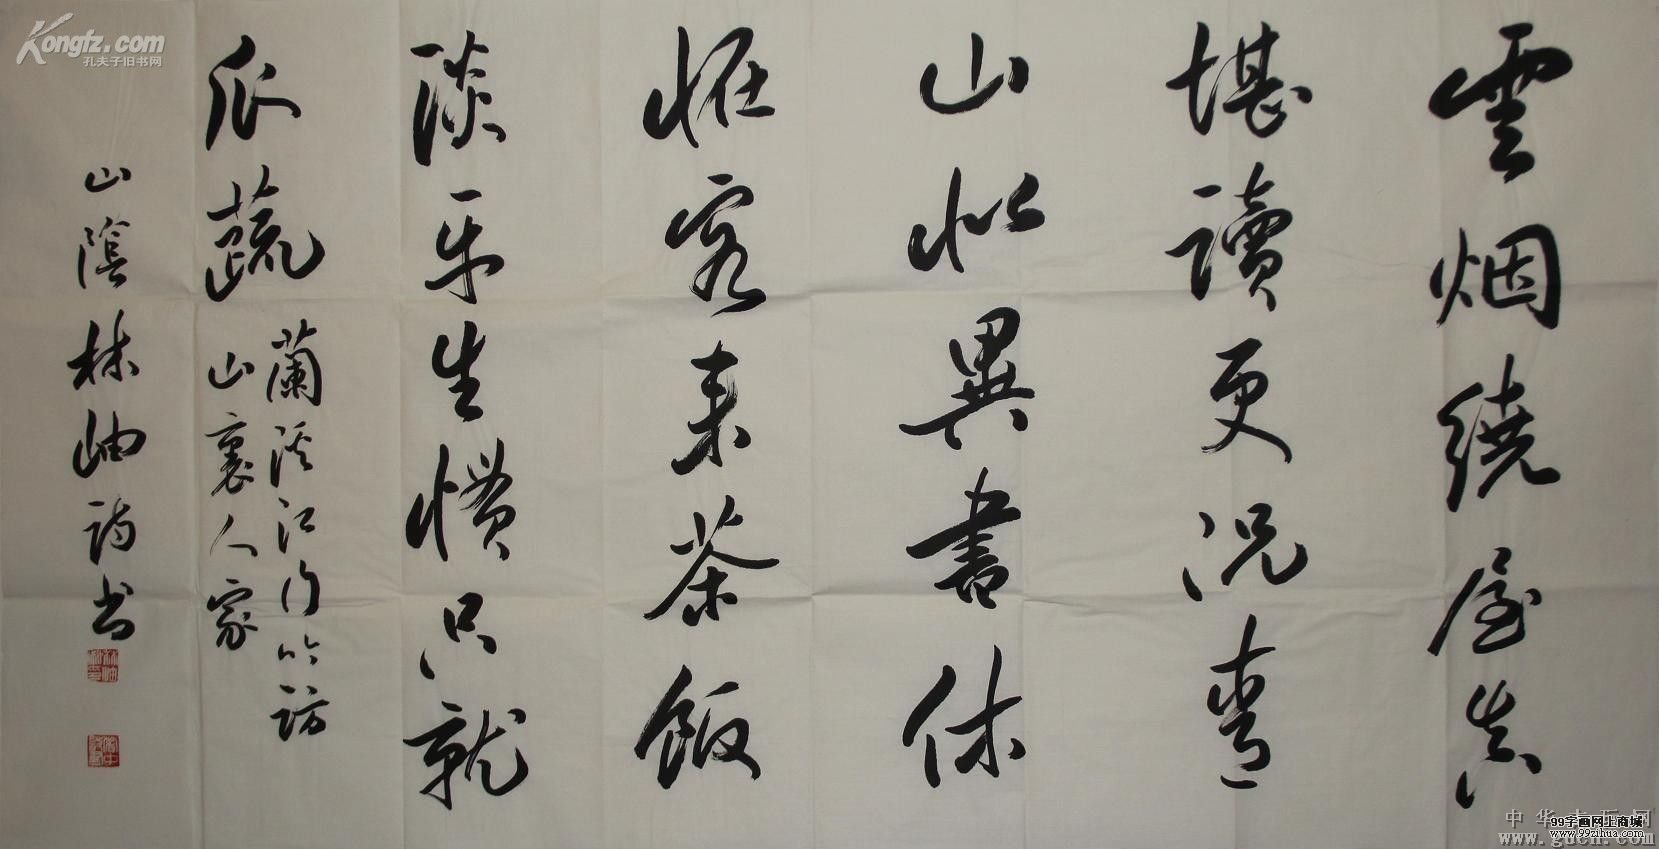 雲烟繞屋真
堪讀更况青
山似異書休
怪客来茶飯
淡平生慣只就
瓜蔬
蘭溪江行吟訪
山裏人家
山陰林岫詩书
Kongfz.com
孔夫子旧书网
99字画网上商城
www.99zihua.com